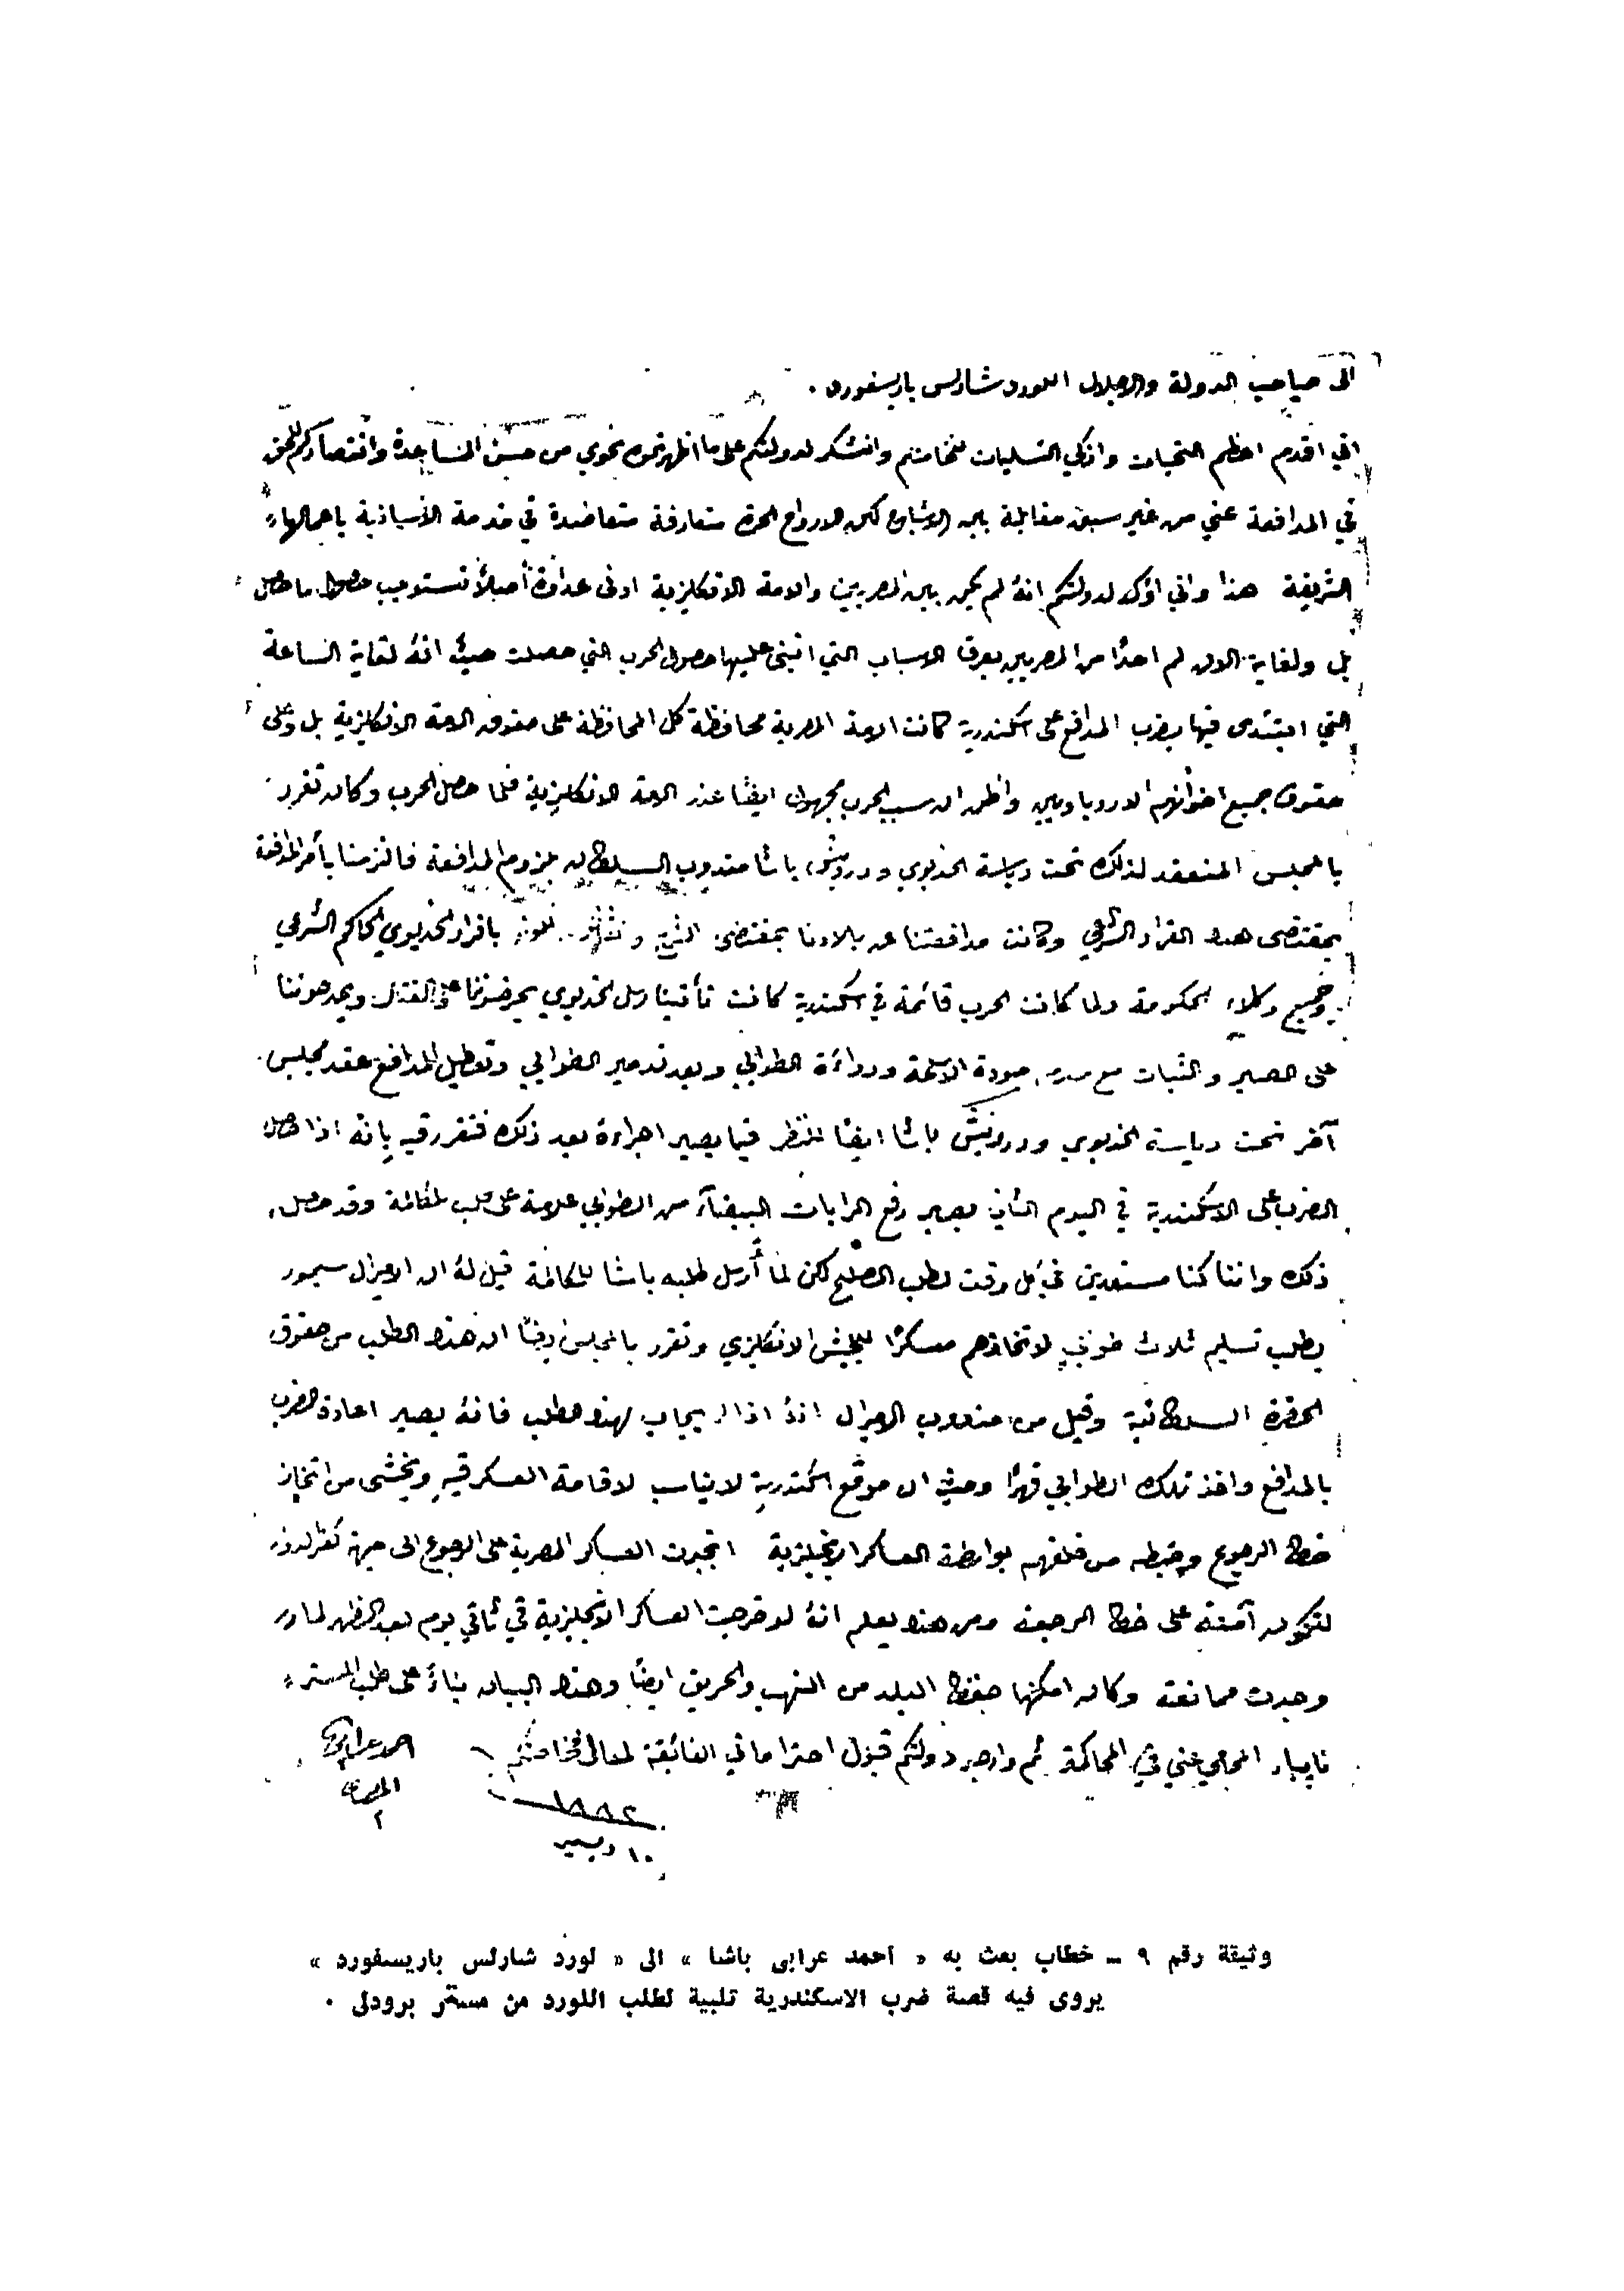 الى صاحب الدولة والاجلال اللورد شارلس باريسفورد .
اني اقدم اعظم التحيات وازكي التسليات لفخامتكم واتشكر لدولتكم على ما اظهرتموه نحوي من حسن المساعدة وانتصاركم للحق
في المدافعة عني من غير سبق مقابلة بين الاشباح لكن الارواح الحرة متعارفة متعاضدة في خدمة الانسانية باعمالها
الشريفة هذا واني اؤكد لدولتكم انهُ لم يكن بين المصريين والامة الانكليزية ادنى عداوة اصلاً تستوجب حصول ما حصل
بل ولغاية الان لم احدًا من المصريين يعرف الاسباب التي انبنى عليها حصول الحرب التي حصلت حيث انهُ لغاية الساعة
التي ابتدى فيها بضرب المدافع على اسكندرية كانت الامة المصرية محافظة كل المحافظة على حقوق الامة الانكليزية بل وعلى
حقوق جميع اخوانهم الاوروباويين واظن ان سبب الحرب مجهول ايضًا عند الامة الانكليزية فلما حصل الحرب وكان تقرر
بالمجلس المنعقد لذلك تحت رياسة الخديوي ودرويش باشا مندوب السلطان بلزوم المدافعة فالتزمنا بأمر المدافعة
بمقتضى هذا القرار الشرعي وكانت مدافعتنا عن بلادنا بمقتضى الشرع و باقرار الخديوي الحاكم الشرعي
وجميع وكلاء الحكومة ولما كانت الحرب قائمة في اسكندرية كانت تأتينا رسل الخديوي يحرضوننا على القتال ويمدحوننا
على الصبر والثبات مع عدم جودة الاسلحة ورداءة الطوابي وبعد تدمير الطوابي وتعطيل المدافع عقد مجلس
آخر تحت رياسة الخديوي ودرويش باشا ايضًا للنظر فيما يصير اجراءهُ بعد ذلك فتقرر فيه بانه اذا حصل
الضرب على الاسكندرية في اليوم الثاني يصير رفع الرايات البيضآء من الطوابي علامة على طلب المكالمة وقد حصل
ذلك واننا كنا مستعدين في كل وقت لطلب الصلح لكن لما أرسل طلبه باشا للمكالمة قيل لهُ ان الاميرال سيمور
يطلب تسليم ثلاث طوابي لاتخاذهم معسكرًا للجيش الانكليزي وتقرر بالمجلس ايضًا ان هذا الطلب من حقوق
الحضرة السلطانية وقيل من مندوب الاميرال انهُ اذا لم يجاب لهذا المطلب فانهُ يصير اعادة الضرب
بالمدافع واخذ تلك الطوابي قهرًا وحيث ان موقع اسكندرية لا يناسب لاقامة العسكر فيهِ ويخشى من اتخاذ
خط الرجوع وضبطه من خلفهم بواسطة العساكر الانجليزية انجبرت العساكر المصرية على الرجوع الى جهة كفر الدوار
لتكون آمنة على خط الرجعة ومن هذا يعلم انهُ لو خرجت العساكر الانجليزية في ثاني يوم بعد الظهر لما
وجدت ممانعة وكان امكنها حفظ البلد من النهب والحريق ايضًا وهذا البيان بناءً على طلب المستر
نابيار المحامي عني في المحاكمة ثم وارجو دولتكم قبول احتراماتي الفائقة لمعالى فخامتكم
احمد عرابي
المصرى
١٨٨٢
١٠ دسمبر
وثيقة رقم ٩ ـ خطاب بعث به « أحمد عرابى باشا » الى « لورد شارلس باريسفورد »
يروى فيه قصة ضرب الاسكندرية تلبية لطلب اللورد من مستر برودلى ٠